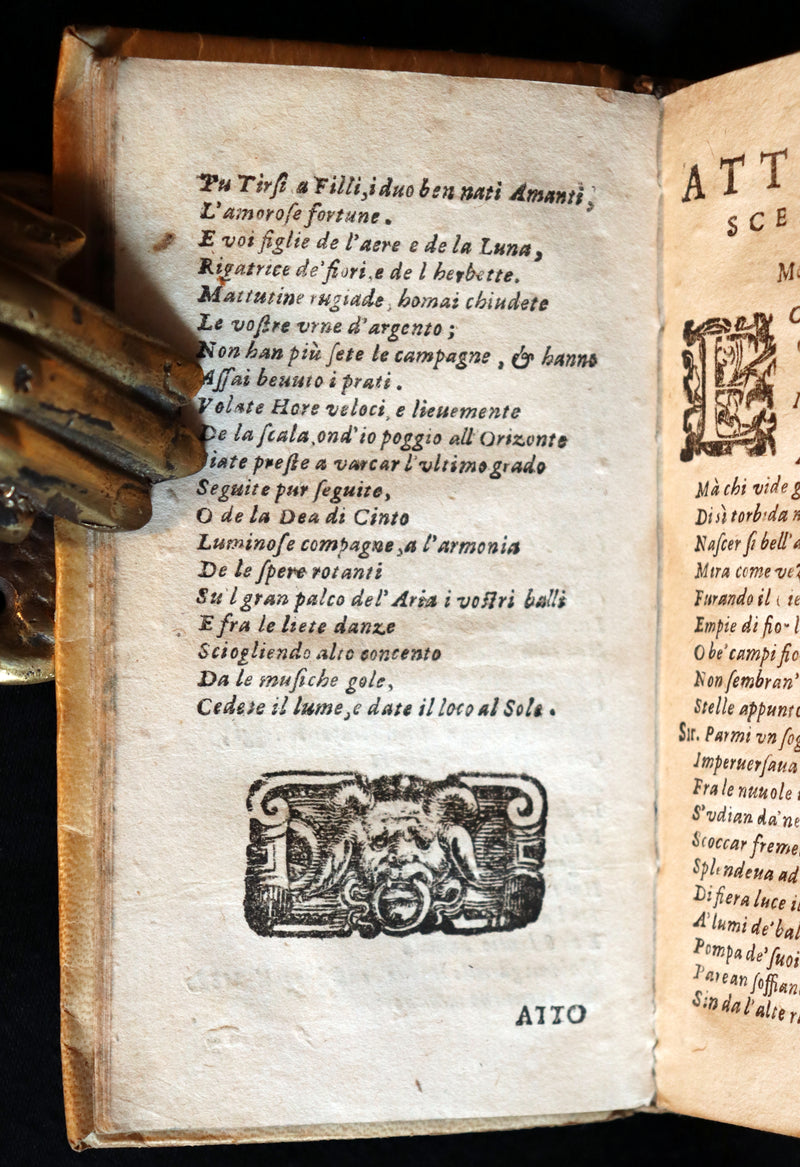 Tu Tirſi a Filli, i duo ben nati Amanti,
L'amoroſe fortune.
E voi figlie de l'aere e de la Luna,
Rigatrice de' fiori, e de l herbette.
Mattutine rugiade, homai chiudete
Le voſtre vrne d'argento;
Non han più ſete le campagne, & hanno
Aſſai beuuto i prati.
Volate Hore veloci, e lieuemente
De la ſcala, ond'io poggio all'Orizonte
iate preſte a varcar l'vltimo grado
Seguite pur ſeguite,
O de la Dea di Cinto
Luminoſe compagne, a l'armonia
De le ſpere rotanti
Su'l gran palco del' Aria i voſtri balli
E fra le liete danze
Sciogliendo alto concento
Da le muſiche gole,
Cedete il lume, e date il loco al Sole.
ATTO
ATT
SCE
Mà chi vide g
Di sì torbida n
Naſcer ſi bell'a
Mira come ve
Furando il
Empie di fio
O be' campi fio
Non ſembran'
Stelle appunto
Sir. Parmi vn ſog
Imperuerſaua
Fra le nuuole
S'vdian da' ne
Scoccar freme
Splendeua ad
Di fiera luce il
A' lumi de' bal
Pompa de' ſuoi
Parean ſoffian
Sin da l'alte r